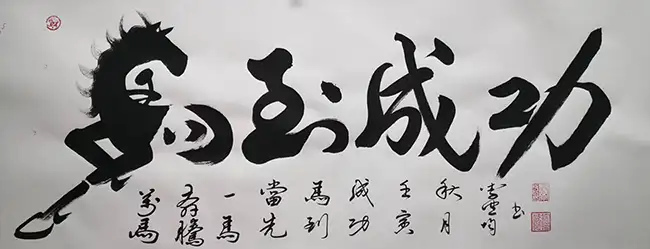 馬到成功
萬馬
奔騰
一馬
當先
馬到
成功
壬寅
秋月
書